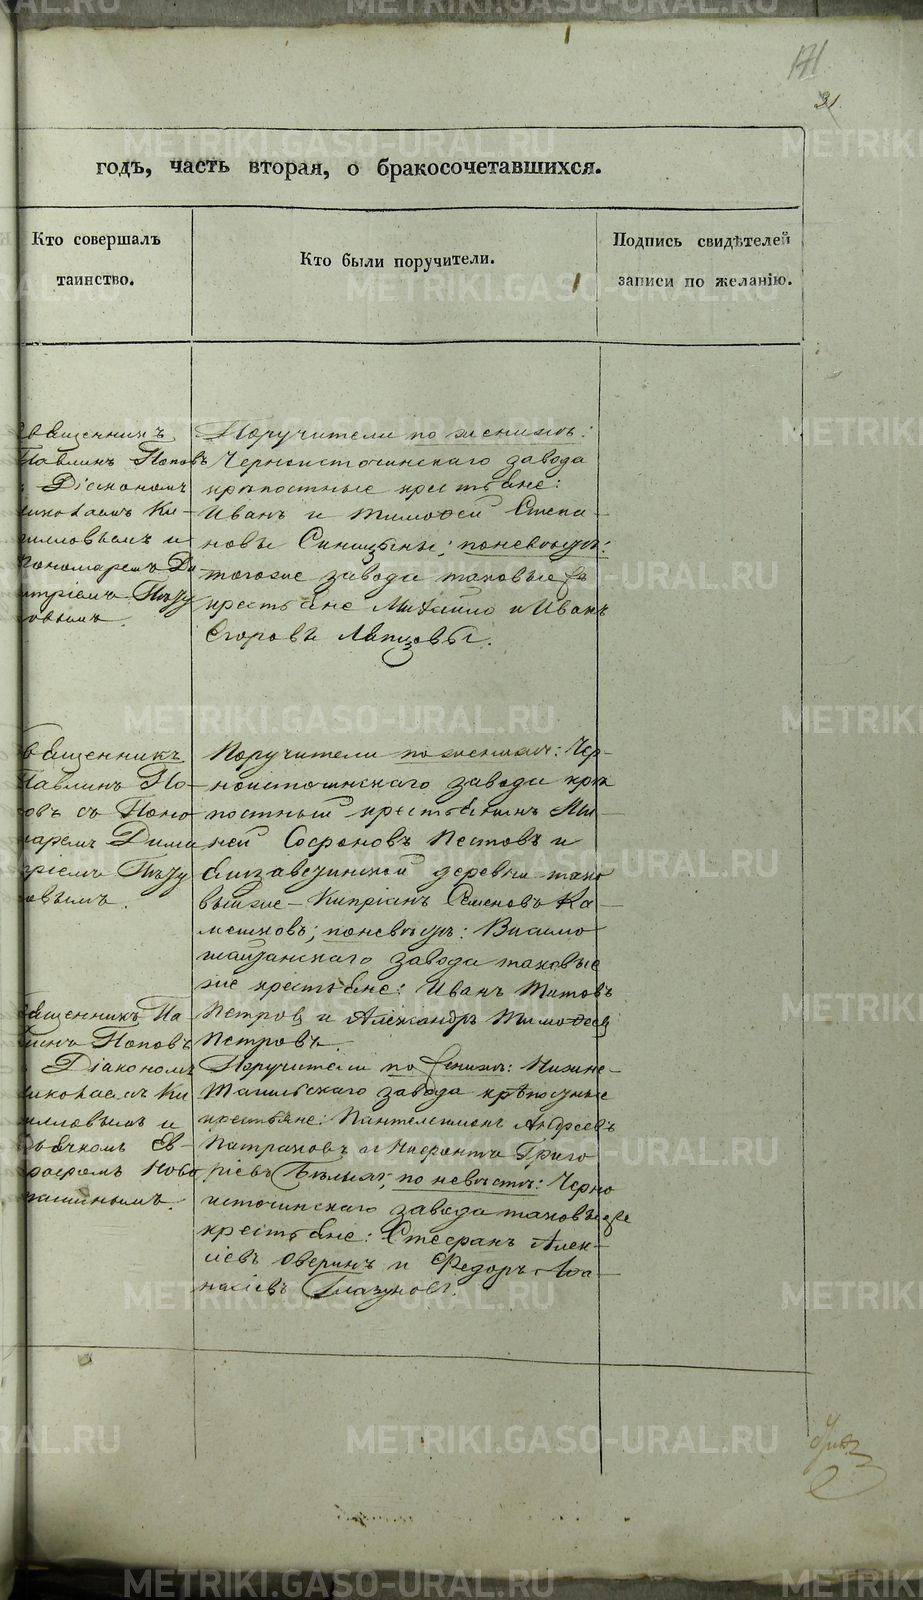 171
31
годъ, часть вторая, о бракосочетавшихся.
Кто совершалъ
таинство.
Кто были поручители.
Подпись свидѣтелей
записи по желанію.
священникъ
Павлинъ Поповъ
Діакономъ
Николаемъ Ки-
рилловымъ и
Пономаремъ Ди-
митріемъ
Поручители по женихѣ:
Черноисточинскаго завода
крѣпостные крестьяне:
Иванъ и Тимоѳей Степа-
новы Синицыны; по невѣстѣ:
тогоже завода таковые же
крестьяне Михайло и Иванъ
Егоровы Лапцовы.
священникъ
Павлинъ По-
повъ съ Поно
маремъ Дими
тріемъ
Поручители по женихѣ: Чер-
ноисточинскаго завода крѣ
постный крестьянинъ Ми-
ней Софроновъ Пестовъ и
Елизаветинской деревни тако
выйже – Кипріанъ Семеновъ Ка-
мешковъ; по невѣстѣ: Висимо
шайтанскаго завода таковые
же крестьяне: Иванъ Титовъ
Петровъ и Александръ Тимоѳеев
Петровъ.
священникъ Па
влинъ Поповъ
Діакономъ
Николаемъ Ки
рилловымъ и
Дьячкомъ Ев-
Ново
Поручители по женихѣ: Нижне-
Тагильскаго завода крѣпостные
крестьяне: Пантелеимонъ Андреевъ
Патраковъ и Нифонтъ Григо
рьевъ Бѣлыхъ; по невѣстѣ: Черно
источинскаго завода таковые же
крестьяне: Стефанъ Алек-
сіевъ Оверинъ и Ѳедоръ Аѳа-
насіевъ Глазуновъ.